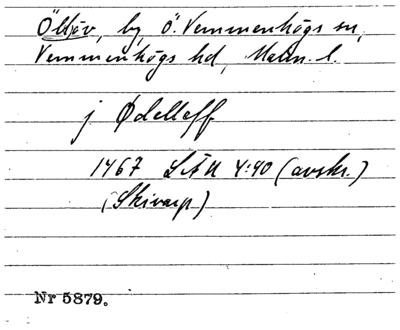 Öllsjöv, by, Ö. Vemmenhögs sn,
Vemmenhögs hd, Malm. l.
j Ødelleff
1467 LÄU 4:40 (avskr.)
(Skivarp)
Nr 5879.